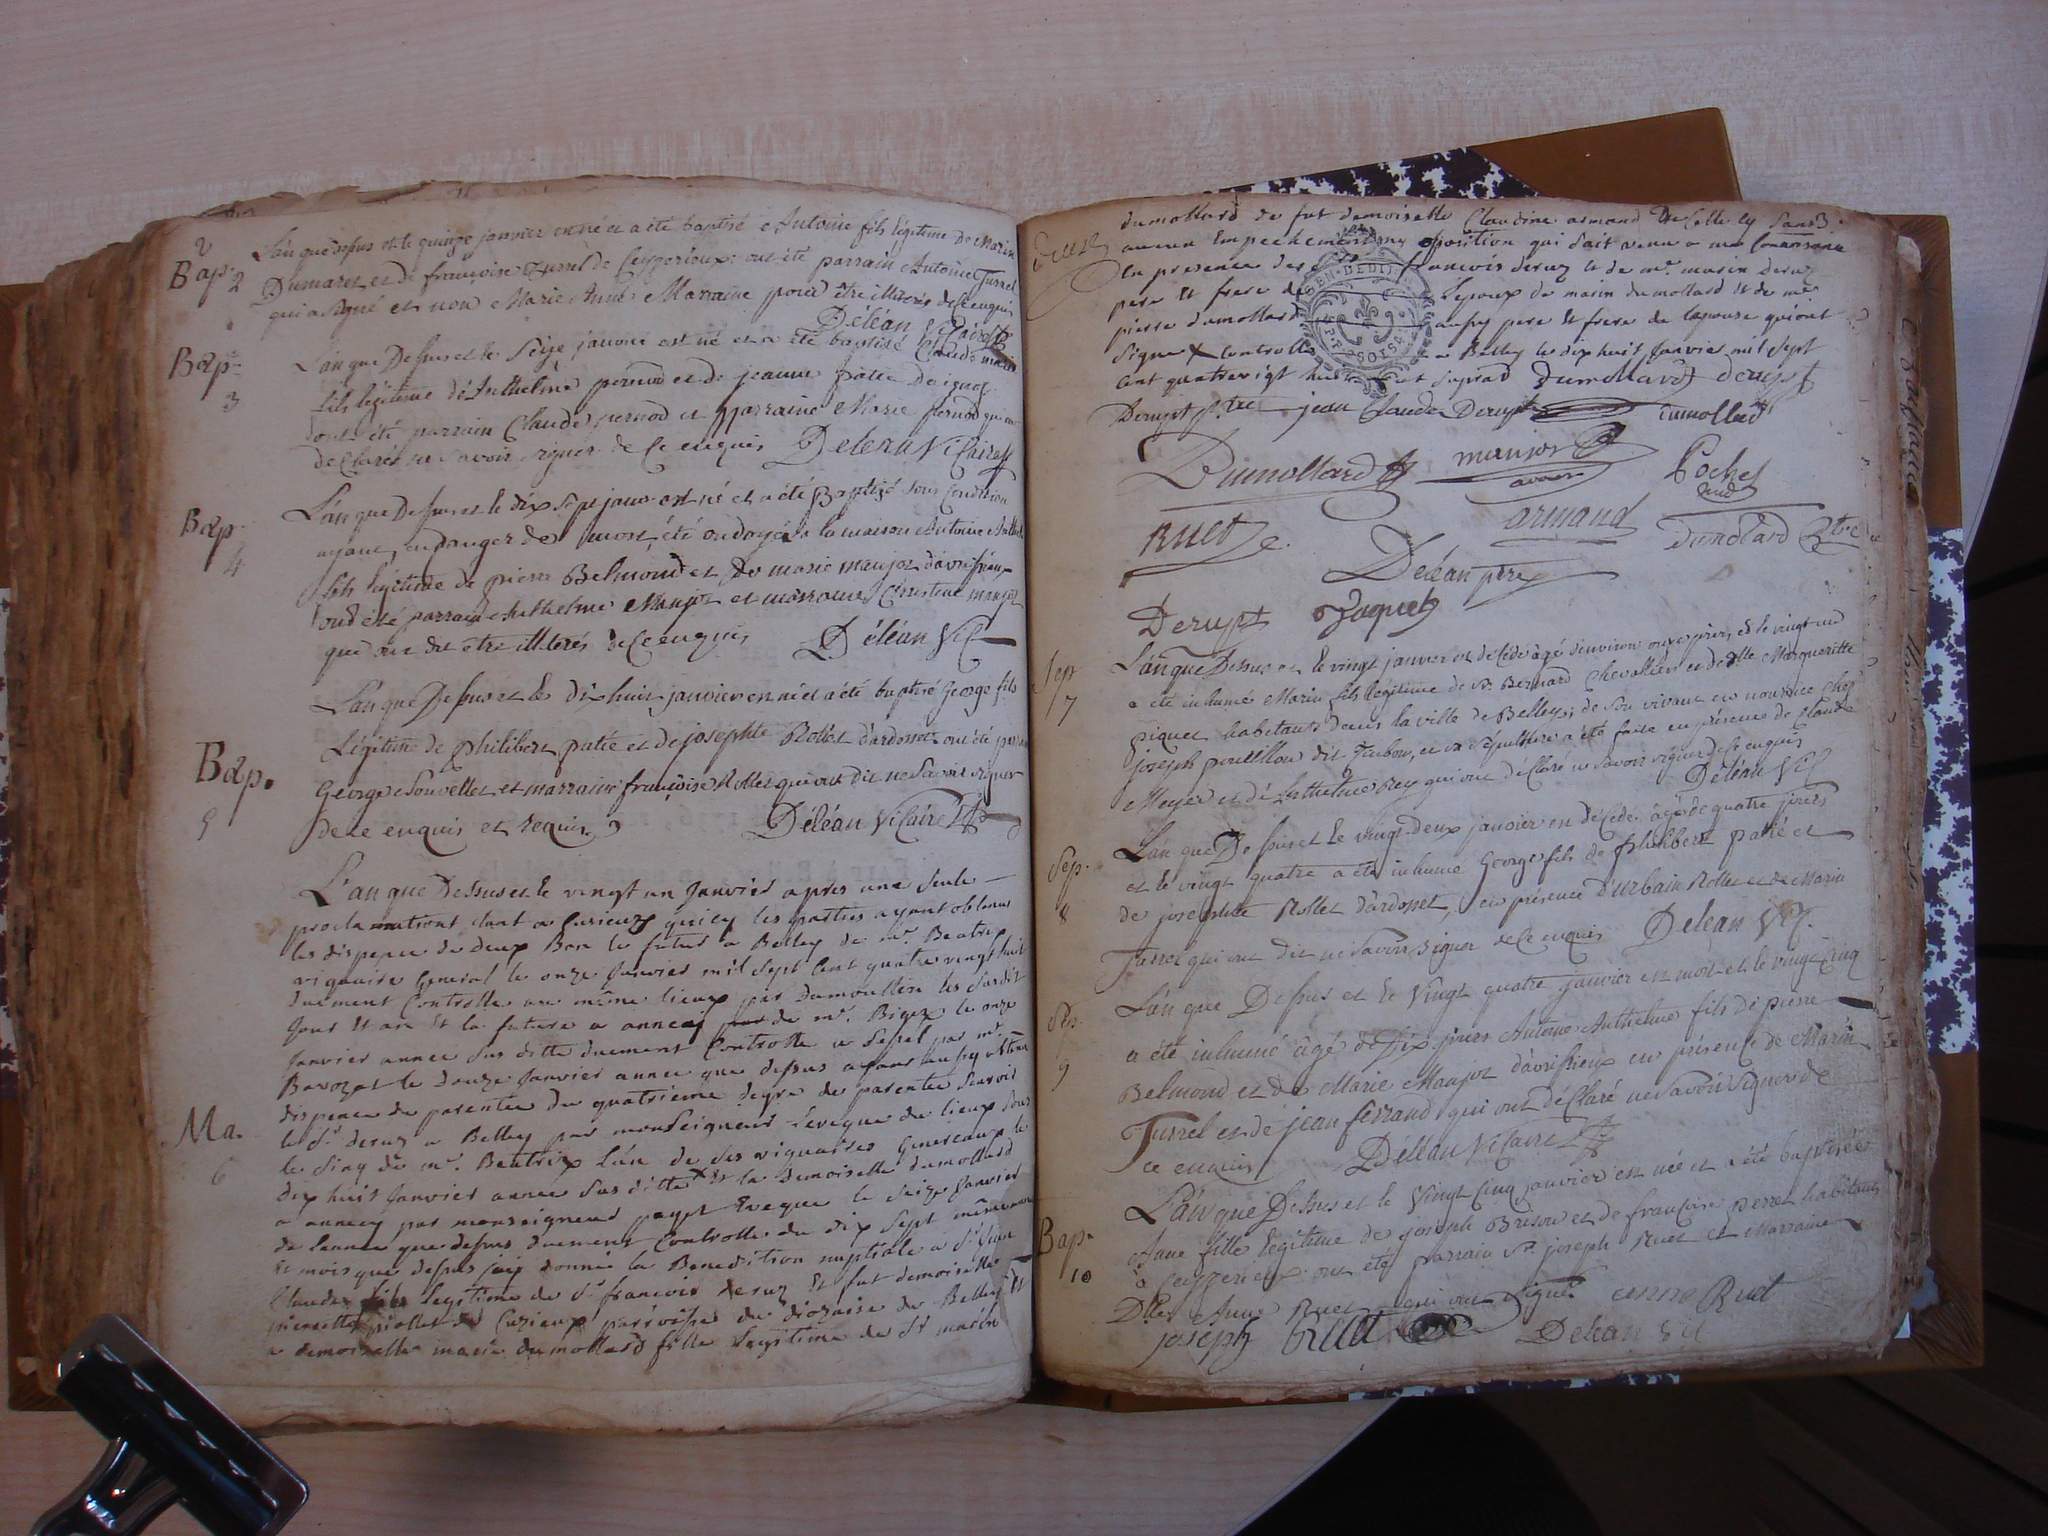 2
Bap. 2
L'an que dessus et le quinze janvier est né et a été baptisé Antoine fils légitime de Marin
Dumaret et de françoise Turrel de Ceyzerieux. ont été parrain Antoine Turrel
qui a signé et non Marie Anne Marraine pour être illiterés de ce enquis
Déléan Vicaire
Bap. 3
L'an que Dessus et le seize janvier est né et a été baptisé Claude marin
fils légitime d'Anthelme pernod et de jeanne patie
ont été parrain Claude pernod et marraine Marie pernod qui ont
declaré ne savoir signer de ce enquis Deléan Vicaire
Bap. 4
L'an que Dessus et le dix sept janv. est né et a été Baptizé sous condition
ayant, en danger de mort, été ondoyé à la maison Antoine Anthel
fils légitime de pierre Belmond et de marie maujot d'avrissieux
ont été parrain Anthelme Maujot et marraine Christine maujot
qui ont dit etre illiterés de ce enquis Déléan Vic
Bap. 5
L'an que Dessus et le dix huit janvier est né et a été baptisé George fils
Légitime de philibert patie et de josephte Rollet d'ardosset ont été parrain
George Souvellet et marraine françoise Rollet qui ont dit ne savoir signer
de ce enquis et requis Déléan Vicaire
Ma. 6
L'an que Dessus et le vingt un Janvier apres une seule
proclamationt tant a Curieux qu'icy les parties ayant obtenus
les dispence de deux Ban le futur a Belley de mr. Beatrix
viguaire General le onze Janvier mil sept cent quatre vingt huit
duement Controlle au même lieux par Dumoullin les susdit
Jour et an Et la future a annecy par de mr. Bigex le onze
Janvier annee sus ditte duement Controlle a Sessel par mr
Bavozat le douze Janvier annee que dessus ayant aussy obtenu
dispence de parentee du quatrieme degre de parentee scavoir
le sr. deruz a Belley par monseigneur L'eveque du lieux sous
le sing de mr. Beatrix L'un de ses viguaires Genereaux le
dix huit Janvier annee sus ditte Et la Demoiselle dumollard
a annecy par monseigneur payet Eveque le seize Janvier
de l'annee que dessus duement Controlle du dix sept même annee
Et mois que dessus jay donnée la Benediction nuptiale a sr jean
Claude fils legitime de sr. francois deruz Et fut demoiselle
pierrette piollet de Cuzieux parroisse du dioraise de Belley Et
a demoiselle marie dumollard fille Legitime de sr marin
3
dumollard de fut demoiselle Claudine armand de Celle cy sans
aucun Empechement ny oposition qui soit venu a ma Connoissance
En presence des francois deruz et de mr. marin deruz
pere Et frere de Lepoux de marin dumollard Et de mr
pierre dumollard aussy pere Et frere de lapouse qui ont
signe Controlle a Belley le dix huit Janvier mil sept
cent quatre vigt huit Dumollard deruz
Derupt jean Claude Derupt dumollard
Dumollard maujot Pochet
Ruet armand dumollard
Déléan
Derupt Jaquet
Sep. 7
L'an que Dessus et le vingt janvier est décédé agé d'environ onze jours, et le vingt un
a été inhumé Marin fils légitime de sr. Bernard Chevallier et de dlle Margueritte
piquet habitants dans la ville de Belley; de son vivant en nourrice chez
joseph poutillon dit Turbou, et sa sépulture a été faite en présence de Claude
Meyer et d'Anthelme Rey qui ont déclaré ne savoir signer de ce enquis
Déléan Vic
Sep. 8
L'an que Dessus et le vingt-deux janvier est décédé âgé de quatre jours
et le vingt quatre a été inhumé George fils de philibert patié et
de josephte Rollet d'ardosset, en présence d'urbain Rollet et de Marin
Turrel qui ont dit ne savoir signer de ce enquis Deléan Vic.
9
L'an que Dessus et le vingt quatre janvier est mort et le vingt cinq
a été inhumé âgé de six jours Antoine Anthelme fils de pierre
Belmond et de Marie Maujot d'avrissieux en présence de Marin
Turrel et de jean ferrand qui ont déclaré ne savoir signer de
ce enquis Déléan Vicaire
Bap. 10
L'an que Dessus et le vingt cinq janvier est née et a été baptisée
Anne fille légitime de joseph Brison et de françoise perret habitants
à Ceyzerieux ont été parrain sr. joseph Ruet et Marraine
Dlle Anne Ruet qui ont signé anne Ruet
joseph Ruet Déléan Vic